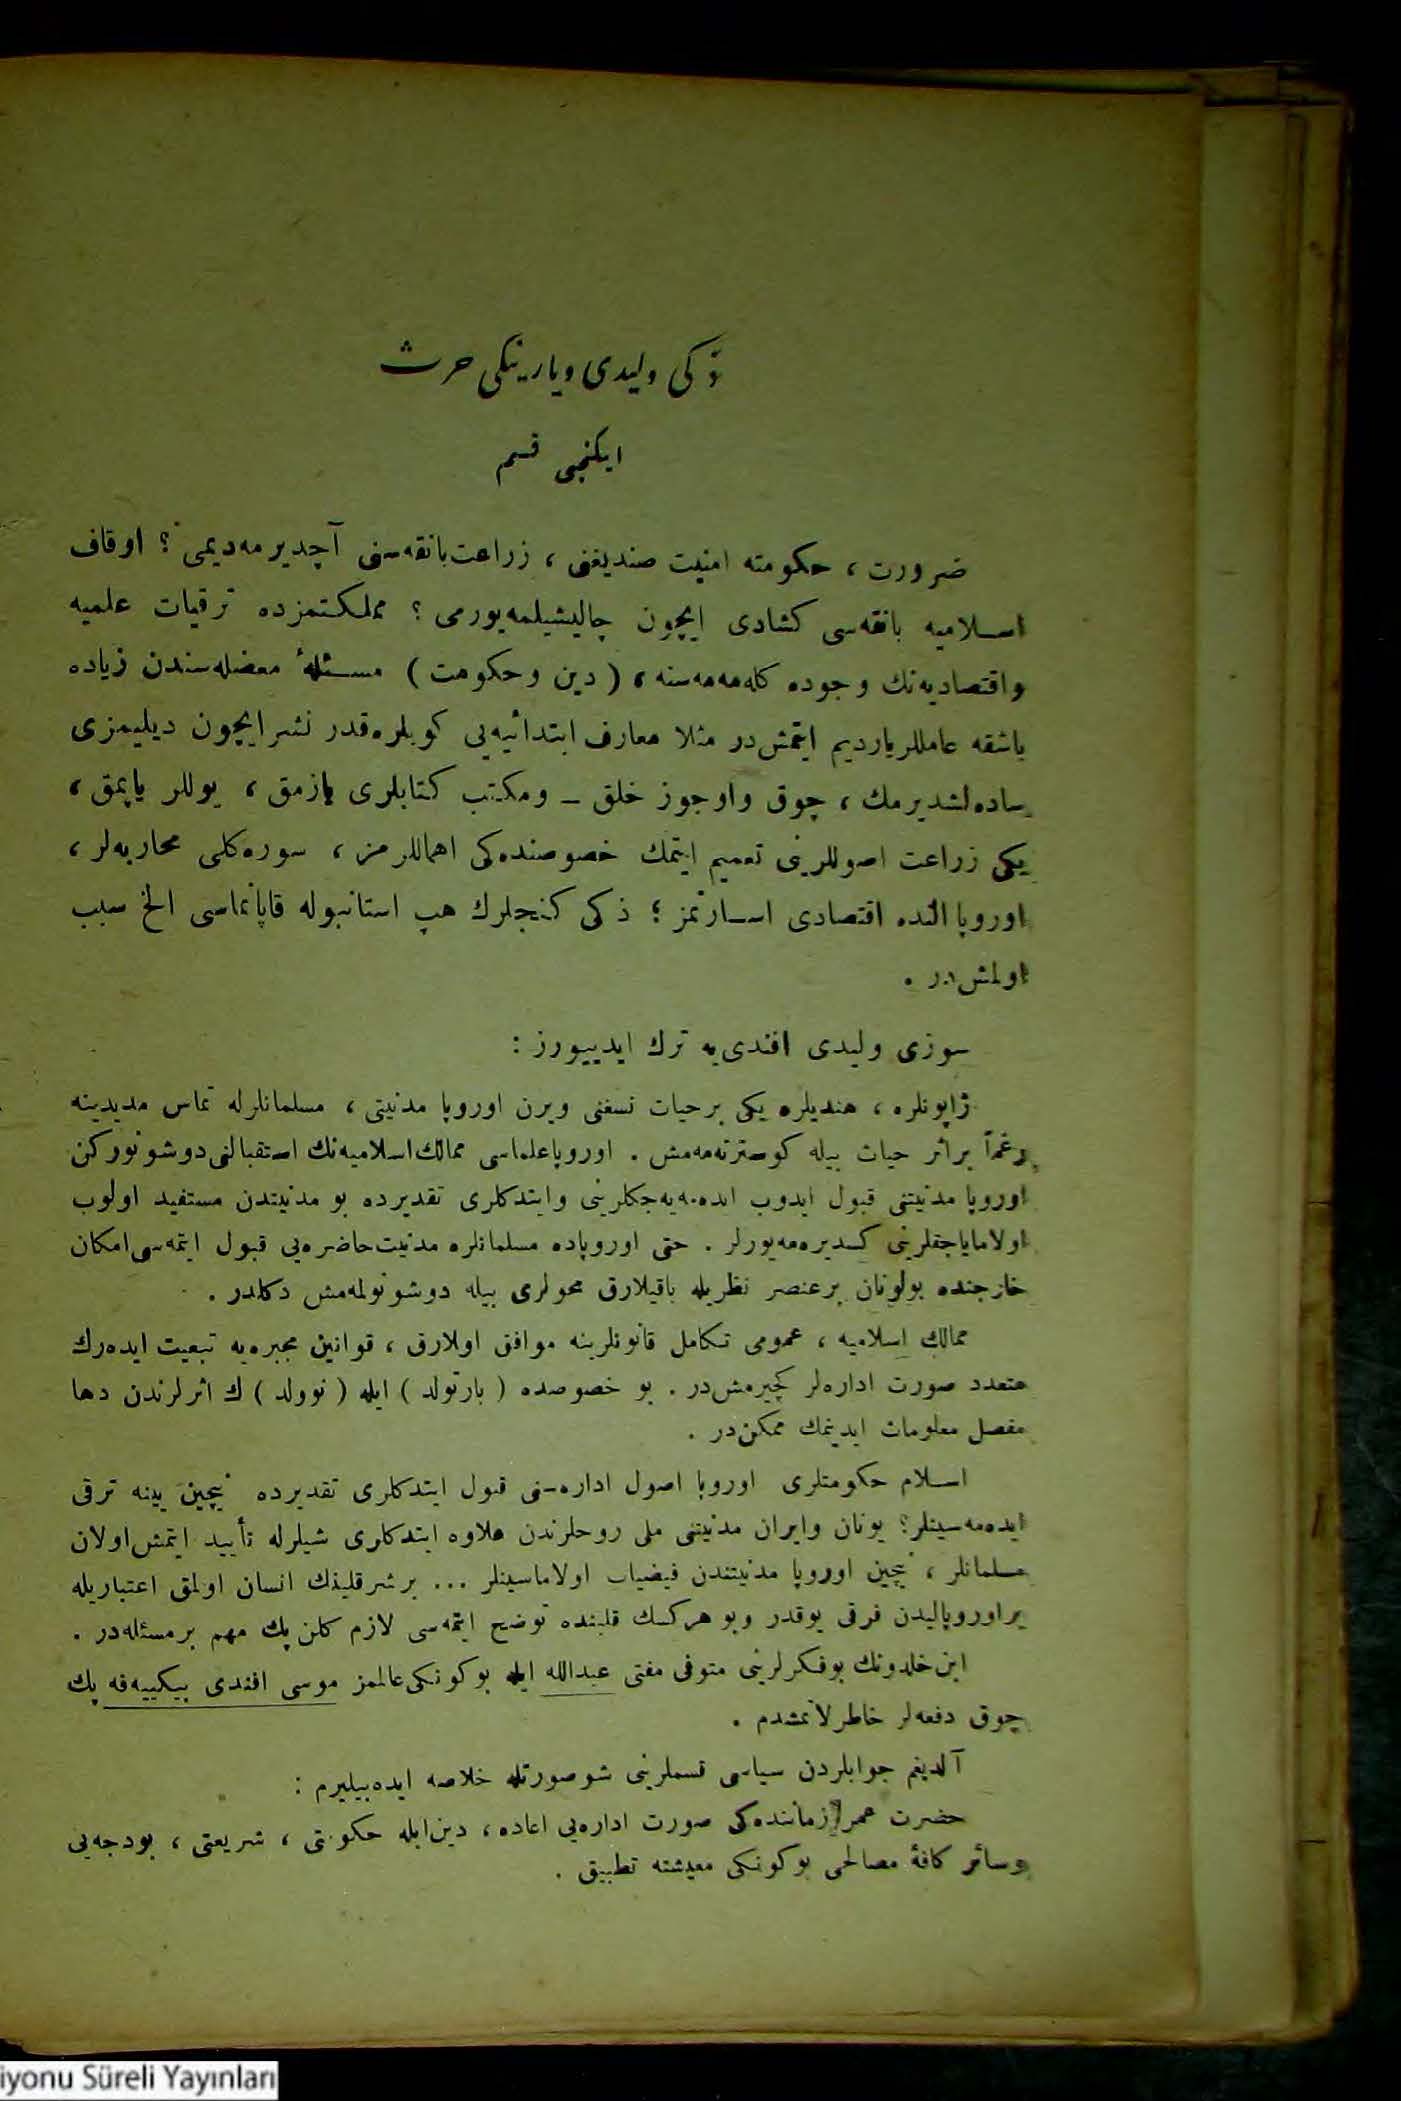 ذكی ولیدی ویارینكی حرث
ایكنجی قسم
ضرورت ، حكومته امنیت صندیغنی ، زراعت بانقه‌سنی آچدیرمه‌دیمی ؟ اوقاف
اسلامیه بانقه‌سی كشادی ایچون چالیشیلمه‌یورمی ؟ مملكتمزده ترقیات علمیه
واقتصادیه‌نك وجوده كله‌مه‌مه‌سنه ، ( دین وحكومت ) مسئلهٔ معضله‌سندن زیاده
باشقه عامللر یاردیم ایتمش‌در مثلا معارف ابتدائیه‌یی كویلره‌قدر نشر ایچون دیلیمزی
ساده‌لشدیرمك ، چوق واوجوز خلق ـ ومكتب كتابلری یازمق ، یوللر یاپمق ،
یكی زراعت اصوللرینی تعمیم ایتمك خصوصنده‌كی اهماللرمز ، سوره‌كلی محاربه‌لر ،
اوروپا النده اقتصادی اسارتمز ؛ ذكی كنجلرك هپ استانبوله قاپانماسی الخ سبب
اولمش‌در .
سوزی ولیدی افندی‌یه ترك ایدییورز :
ژاپونلره ، هندیلره یكی بر حیات نسغنی ویرن اوروپا مدنیتی ، مسلمانلرله تماس مدیدینه
رغماً بر اثر حیات بیله كوسترته‌مه‌مش . اوروپا علماسی ممالك اسلامیه‌نك استقبالنی دوشونوركن
اوروپا مدنیتنی قبول ایدوب ایده‌مه‌یه‌جكلرینی وایتدكلری تقدیرده بو مدنیتدن مستفید اولوب
اولامایاجقلرینی كسدیره‌مه‌یورلر . حتی اوروپاده مسلمانلره مدنیت حاضره‌یی قبول ایتمه‌سی امكان
خارجنده بولونان بر عنصر نظریله باقیلارق محولری بیله دوشونولمه‌مش دكلدر .
ممالك اسلامیه ، عمومی تكامل قانونلرینه موافق اولارق ، قوانین مجبره‌یه تبعیت ایده‌رك
متعدد صورت اداره‌لر كچیرمش‌در . بو خصوصده ( بارتولد ) ایله ( نوولد ) ك اثرلرندن دها
مفصل معلومات ایدینمك ممكن‌در .
اسلام حكومتلری اوروپا اصول اداره‌سنی قبول ایتدكلری تقدیرده نیچین یینه ترقی
ایده‌مه‌سینلر؟ یونان وایران مدنیتنی ملی روحلرندن علاوه ایتدكلری شیلرله تأیید ایتمش اولان
مسلمانلر ، نیچین اوروپا مدنیتندن فیضیاب اولاماسینلر ... بر شرقلینك انسان اولمق اعتباریله
بر اوروپالیدن فرقی یوقدر وبو هركسك قلبنده توضح ایتمه‌سی لازم كلن پك مهم بر مسئله‌در .
ابن خلدونك بو فكرلرینی متوفی مفتی عبدالله ایله بو كونكی عالممز موسی افندی بیكییه‌فه پك
چوق دفعه‌لر خاطرلاتمشدم .
آلدیغم جوابلردن سیاسی قسملرینی شو صورتله خلاصه ایده‌بیلیرم :
حضرت عمر زماننده‌كی صورت اداره‌یی اعاده ، دین ایله حكومتی ، شریعتی ، بودجه‌یی
وسائر كافهٔ مصالحی بو كونكی معیشته تطبیق .
iyonu Süreli Yayınları